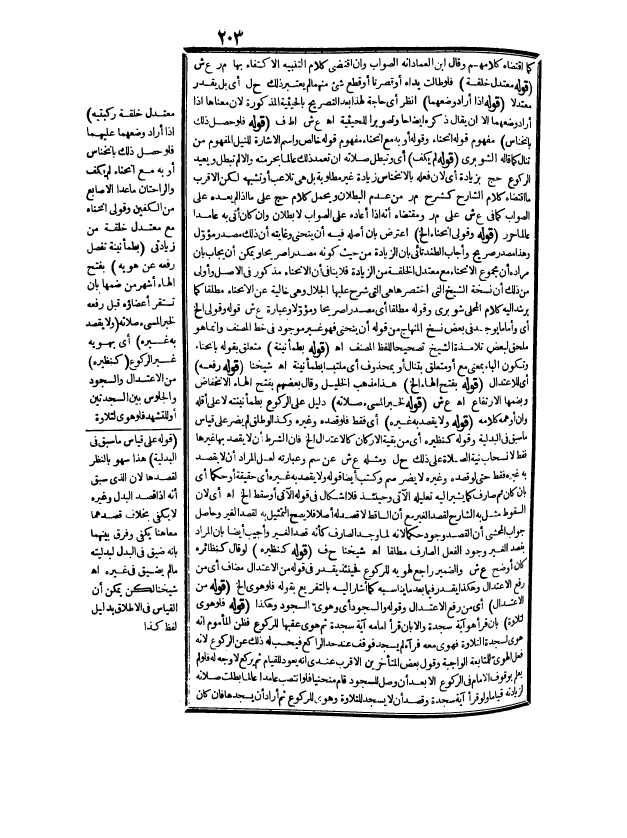 ٢٠٣
كما اقتضاه كلامهم وقال ابن العماد انه الصواب وان اقتضى كلام التنبيه الاكتفاء بها م ر ع ش
(قوله معتدل خلقة) فلوطالت يداه أو قصرتا أو قطع شئ منهما لم يعتبر ذلك ح ل أى بل يقدر
معتدلا (قوله اذا أراد وضعهما) انظر أى حاجة لهذا بعد التصريح بالحيثية المذكورة لان معناها اذا
أراد وضعهما الا ان يقال ذكره ايضاحا وتصويرا للحيثية اه ع ش اط ف (قوله فلو حصل ذلك
بانخناس) مفهوم قوله انحناء وقوله أو به مع انحناء مفهوم قوله خالص واسم الاشارة للنيل المفهوم من
تنال كما قاله الشوبرى (قوله لم يكف) أى وتبطل صلاته ان تعمد ذلك عالما بحرمته والا لم تبطل ويعيد
الركوع حج بزيادة أى لان فعله بالانخناس زيادة غير مطلوبة بل هى تلاعب أو تشبهه لكن الاقرب
ما اقتضاه كلام الشارح كشرح م ر من عدم البطلان ويحمل كلام حج على ما اذا لم يعده على
الصواب كما فى ع ش على م ر ومقتضاه أنه اذا أعاده على الصواب لا بطلان وان كان أتى به عامدا
عالما حرر (قوله وقولى انحناء الخ) اعترض بان أصله فيه أن ينحنى وغايته أن ذلك مصدر مؤول
وهذا مصدر صريح وأجاب الطندتائى بان الزيادة من حيث كونه مصدرا صريحا ويمكن أن يجاب بان
مراده أن مجموع الانحناء مع معتدل الخلقة من الزيادة فلا ينافى أن الانحناء مذكور فى الاصل وأولى
من ذلك أن نسخة الشيخ التى اختصرها هى التى شرح عليها الجلال وهى خالية عن الانحناء مطلقا كما
يرشد اليه كلام المحلى شوبرى وقوله مطلقا أى مصدرا صريحا ومؤولا وعبارة ع ش قوله وقولى الخ
أى وأما ما يوجد فى بعض نسخ المنهاج من قوله أن ينحنى فهو غير موجود فى خط المصنف وانما هو
ملحق لبعض تلامذة الشيخ تصحيحا للفظ المصنف اه (قوله بطمأنينة) متعلق بقوله بانحناء
وتكون الباء بمعنى مع أو متعلق بتنال أو بمحذوف أى ملتبسا بطمأنينة اه شيخنا (قوله رفعه)
أى للاعتدال (قوله بفتح الهاء الخ) هذا مذهب الخليل وقال بعضهم بفتح الهاء الانخفاض
وبضمها الارتفاع اه ع ش (قوله لخبر المسىء صلاته) دليل على الركوع بطمأنينته لا على أقله
وان أوهمه كلامه (قوله ولا يقصد به غيره) أى فقط فلو قصده وغيره وكذا لو أطلق لم يضر على قياس
ما سبق فى البدلية وقوله كنظيره أى من بقية الاركان كالاعتدال الخ فان الشرط أن لا يقصد بها غيرها
فقط لانسحاب نية الصلاة على ذلك ح ل ومثله ع ش عن سم وعبارته لعل المراد أن لا يقصد
به غيره فقط حتى لو قصده وغيره لا يضر سم وكتب أيضا قوله ولا يقصد به غيره أى حقيقة أو حكما أى
بان كان ثم صارف كما يشير اليه تعليله الآتى وحينئذ فلا اشكال فى قوله الآتى أو سقط الخ اه أى لان
السقوط مثل به الشارح لقصد الغير مع أن الساقط لا قصد له أصلا فلا يصح التمثيل به لقصد الغير وحاصل
جواب المحشى أن القصد وجود حكما لانه لما وجد الصارف كأنه قصد الغير وأجيب أيضا بان المراد
بقصد الغير وجود الفعل الصارف مطلقا اه شيخنا ح ف (قوله كنظيره) لو قال كنظائره
كان أوضح ع ش والضمير راجع لهويه للركوع فحينئذ يقدر فى قوله من الاعتدال مضاف أى من
رفع الاعتدال وهكذا يقدر فيما بعد ما يناسبه كما أشار اليه بالتفريع بقوله فلو هوى الخ (قوله من
الاعتدال) أى من رفع الاعتدال وقوله والسجود أى وهوى السجود وهكذا (قوله فلو هوى
لتلاوة) بان قرأ هو آية سجدة والا بان قرأ امامه آية سجدة ثم هوى عقبها للركوع فظن المأموم انه
هوى لسجدة التلاوة فهوى معه فرآه لم يسجد فوقف عند حد الراكع فيحسب له ذلك عن الركوع لانه
فعل الهوى للمتابعة الواجبة وقول بعض المتأخرين الاقرب عندى انه يعود للقيام ثم يركع لا وجه له فلو لم
يعلم بوقوف الامام فى الركوع الا بعد أن وصل للسجود قام منحنيا فلو انتصب عامدا عالما بطلت صلاته
لزيادته قياما ولو قرأ آية سجدة وقصد أن لا يسجد للتلاوة وهوى للركوع ثم أراد أن يسجد لها فان كان
معتدل خلقة ركبتيه)
اذا أراد وضعهما عليهما
فلو حصل ذلك بانخناس
أو به مع انحناء لم يكف
والراحتان ماعدا الاصابع
من الكفين وقولى انحناء
مع معتدل خلقة من
زيادتى (بطمأنينة تفصل
رفعه عن هويه) بفتح
الهاء أشهر من ضمها بان
تستقر أعضاؤه قبل رفعه
لخبر المسىء صلاته (ولا يقصد
به غيره) أى بهويه
غير الركوع (كنظيره)
من الاعتدال والسجود
والجلوس بين السجدتين
أو للتشهد فلو هوى لتلاوة
(قوله على قياس ما سبق فى
البدلية) هذا سهو بالنظر
لقصدها لان الذى سبق
أنه اذا قصد البدل وغيره
لا يكفى بخلاف قصدهما
معاهنا يكفى وفرق بينهما
بانه ضيق فى البدل لبدليته
مالم يضيق فى غيره اه
شيخنا لكن يمكن أن
القياس فى الاطلاق بدليل
لفظ كذا